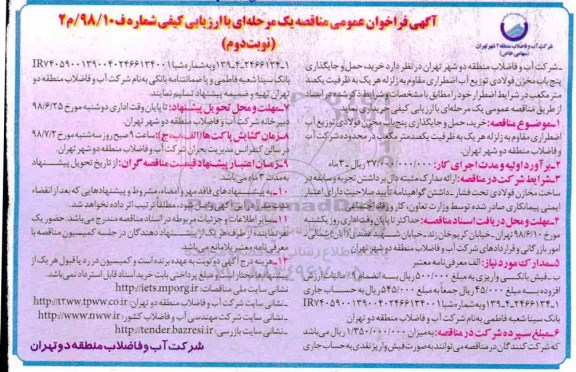 آگهی فراخوان عمومی مناقصه یک مرحله‌ای با ارزیابی کیفی شماره ف۹۸/۱۰/م۲
(نوبت دوم)
شرکت آب و فاضلاب منطقه ۲ شهر تهران
(سهامی خاص)
ـ شرکت آب و فاضلاب منطقه دو شهر تهران در نظر دارد خرید، حمل و جایگذاری
پنج باب مخزن فولادی توزیع آب اضطراری مقاوم به زلزله هر یک به ظرفیت یکصد
متر مکعب در شرایط اضطرار خود را مطابق با مشخصات و شرایط ذکر شده در اسناد
از طریق مناقصه عمومی یک مرحله‌ای با ارزیابی کیفی خریداری نماید.
۱ـ موضوع مناقصه: خرید، حمل و جایگذاری پنج باب مخزن فولادی توزیع آب
اضطراری مقاوم به زلزله هر یک به ظرفیت یکصد متر مکعب در محدوده شرکت آب
و فاضلاب منطقه دو شهر تهران.
۲ـ برآورد اولیه و مدت اجرای کار: ۲۷/۰۰۰/۰۰۰/۰۰۰ ریال ـ ۳ ماه
۳ـ شرایط شرکت در مناقصه: ارائه مدارک مثبته دال بر داشتن تجربه و سابقه در
ساخت مخازن فولادی تحت فشار ـ داشتن گواهینامه تأیید صلاحیت دارای اعتبار
ایمنی پیمانکاری صادر شده توسط وزارت تعاون، کار و
۴ـ مهلت و محل دریافت اسناد مناقصه: حداکثر تا پایان وقت اداری روز یکشنبه
مورخ ۹۸/۶/۱۰ تهران ـ خیابان کریم‌خان زند ـ خیابان شهید عضدی (آبان) شمالی ـ
امور بازرگانی و قراردادهای شرکت آب و فاضلاب منطقه دو شهر تهران
۵ـ مدارک مورد نیاز: الف ـ معرفی‌نامه معتبر
ب ـ فیش بانکی واریزی به مبلغ ۵۰۰/۰۰۰ ریال به انضمام ۹٪ مالیات ارزش
افزوده به مبلغ ۴۵/۰۰۰ ریال جمعاً به مبلغ ۵۴۵/۰۰۰ ریال به حساب جاری
بانک سینا شعبه فاطمی به نام شرکت آب و فاضلاب منطقه دو شهر تهران
۶ـ مبلغ سپرده شرکت در مناقصه: به میزان ۱/۳۵۰/۰۰۰/۰۰۰ ریال می‌باشد
که شرکت کنندگان در مناقصه می‌توانند به صورت فیش واریز نقدی به حساب جاری
بانک سینا شعبه فاطمی و یا ضمانتنامه بانکی به نام شرکت آب و فاضلاب منطقه دو
شهر تهران تهیه و ضمیمه پیشنهاد تسلیم نمایند.
۷ـ مهلت و محل تحویل پیشنهاد: تا پایان وقت اداری دوشنبه مورخ ۹۸/۶/۲۵
دبیرخانه شرکت آب و فاضلاب منطقه دو شهر تهران.
۸ـ زمان گشایش پاکت‌ها (الف، ب، ج): ساعت ۹ صبح روز سه‌شنبه مورخ ۹۸/۷/۲
در سالن کنفرانس مدیریت بحران شرکت آب و فاضلاب منطقه دو شهر تهران.
۹ـ زمان اعتبار پیشنهاد قیمت مناقصه‌گران: از تاریخ تحویل پیشنهاد
به مدت ۳ ماه می‌باشد.
۱۰ـ به پیشنهادهای فاقد مهر و امضاء، مشروط و پیشنهادهایی که بعد از انقضاء
مطلقاً ترتیب اثر داده نخواهد شد.
۱۱ـ سایر اطلاعات و جزئیات مربوطه در اسناد مناقصه مندرج می‌باشد. حضور یک
نفر نماینده از طرف هر یک از پیشنهاد دهندگان در جلسه کمیسیون مناقصه با
معرفی‌نامه معتبر بلامانع می‌باشد.
۱۲ـ هزینه درج آگهی دو نوبت به عهده برنده است و کمیسیون در رد یا قبول هر یک از
مبلغ پرداختی بابت خرید اسناد قابل استرداد نمی‌باشد.
نشانی سایت ملی مناقصات: http://iets.mporg.ir
نشانی سایت شرکت آب و فاضلاب منطقه دو تهران: http://t2ww.tpww.co.ir
نشانی سایت شرکت مهندسی آب و فاضلاب کشور: http://www.nww.ir
نشانی سایت بازرسی: http://tender.bazresi.ir
شرکت آب و فاضلاب منطقه دو تهران